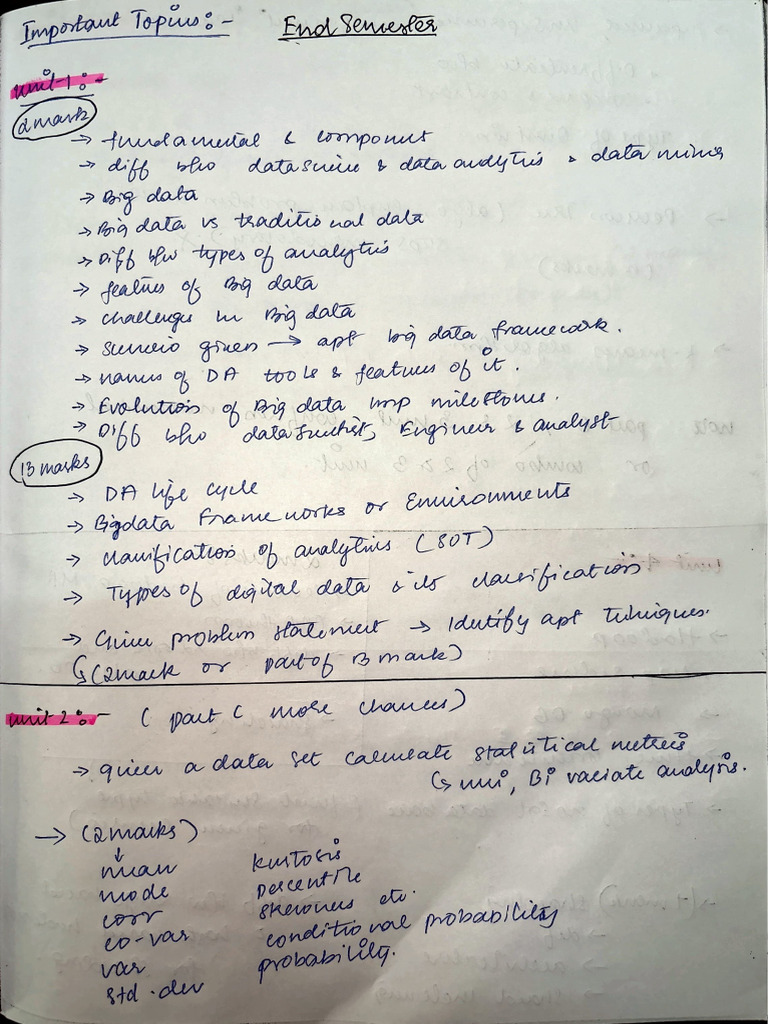 Important Topics:- End Semester
unit-1:-
2mark
→ fundamental & component
→ diff b/w datascience & data analytics & data mining
→ Big data
→ Big data vs traditional data
→ Diff b/w types of analytics
→ features of Big data
→ challenges in Big data
→ scenario given → apt big data framework.
→ names of DA tools & features of it.
→ Evolution of Big data imp milestones.
→ Diff b/w data scientist, Engineer & analyst
13 marks
→ DA life cycle
→ Bigdata Frameworks or Environments
→ classification of analytics (SOT)
→ Types of digital data & its classification
→ Given problem statement → Identify apt techniques.
↳ (2mark or part of 13 mark)
unit 2:- (part C more chances)
→ given a data set calculate statistical metrics
↳ uni, Bi variate analysis.
→ (2marks)
↓
mean kurtosis
mode percentile
corr skewness etc.
co-var conditional probability
var probability.
std.dev